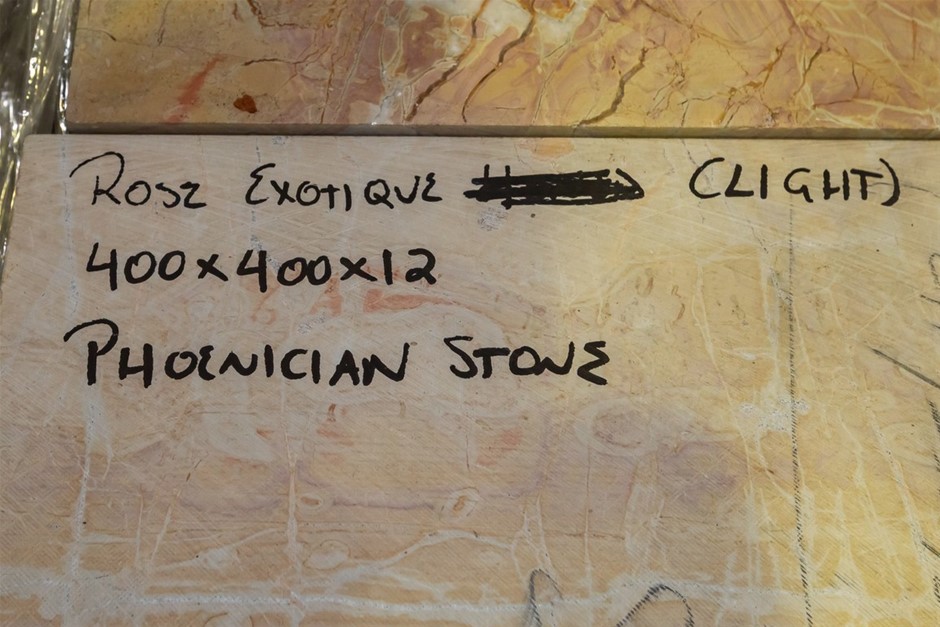 ROSE EXOTIQUE (LIGHT)
400x400x12
PHOENICIAN STONE